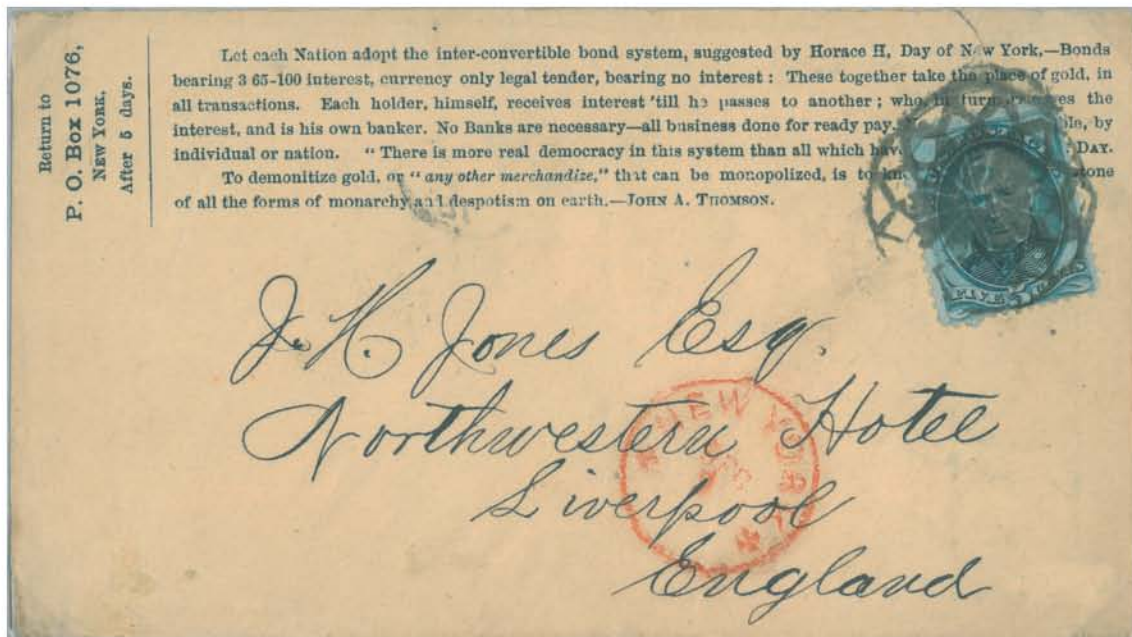 Return to
P. O. Box 1076,
NEW YORK,
After 5 days.
Let each Nation adopt the inter-convertible bond system, suggested by Horace H, Day of New York,—Bonds
bearing 3 65-100 interest, currency only legal tender, bearing no interest : These together take the place of gold, in
all transactions. Each holder, himself, receives interest 'till he passes to another ; who, in turn the
interest, and is his own banker. No Banks are necessary—all business done for ready pay. by
individual or nation. “ There is more real democracy in this system than all which DAY.
To demonitize gold, or “ any other merchandize,” that can be monopolized, is to
of all the forms of monarchy and despotism on earth.—JOHN A. THOMSON.
FIVE CENTS
J. H. Jones Esq.
Northwestern Hotel
Liverpool
England
NEW YORK